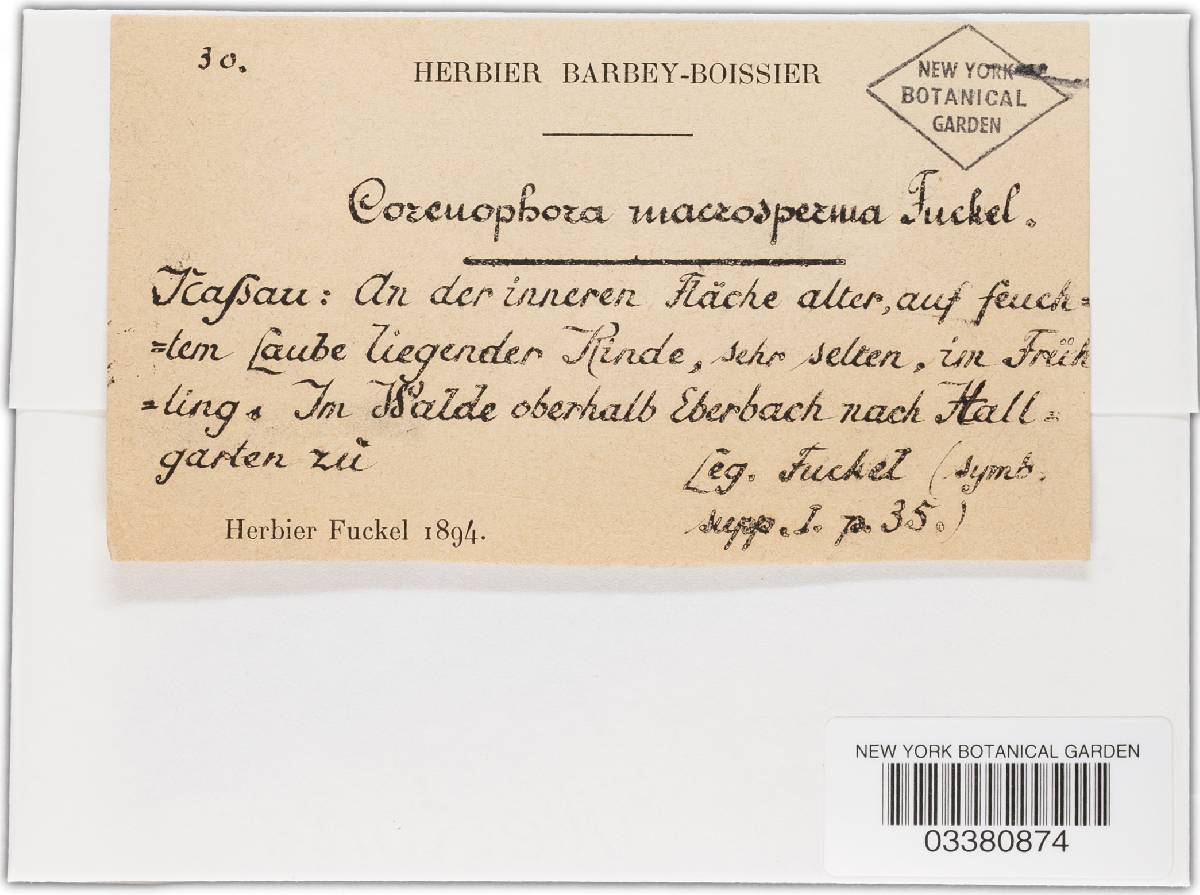 30.
HERBIER BARBEY-BOISSIER
NEW YORK
BOTANICAL
GARDEN
Corenophora macrosperma Fuckel.
Naßau: An der inneren Fläche alter, auf feuch=
=tem Laube liegender Rinde, sehr selten, im Früh
=ling. Im Walde oberhalb Eberbach nach Hall=
garten zŭ
Leg. Fuckel (symb.
supp. I. p. 35.)
Herbier Fuckel 1894.
NEW YORK BOTANICAL GARDEN
03380874